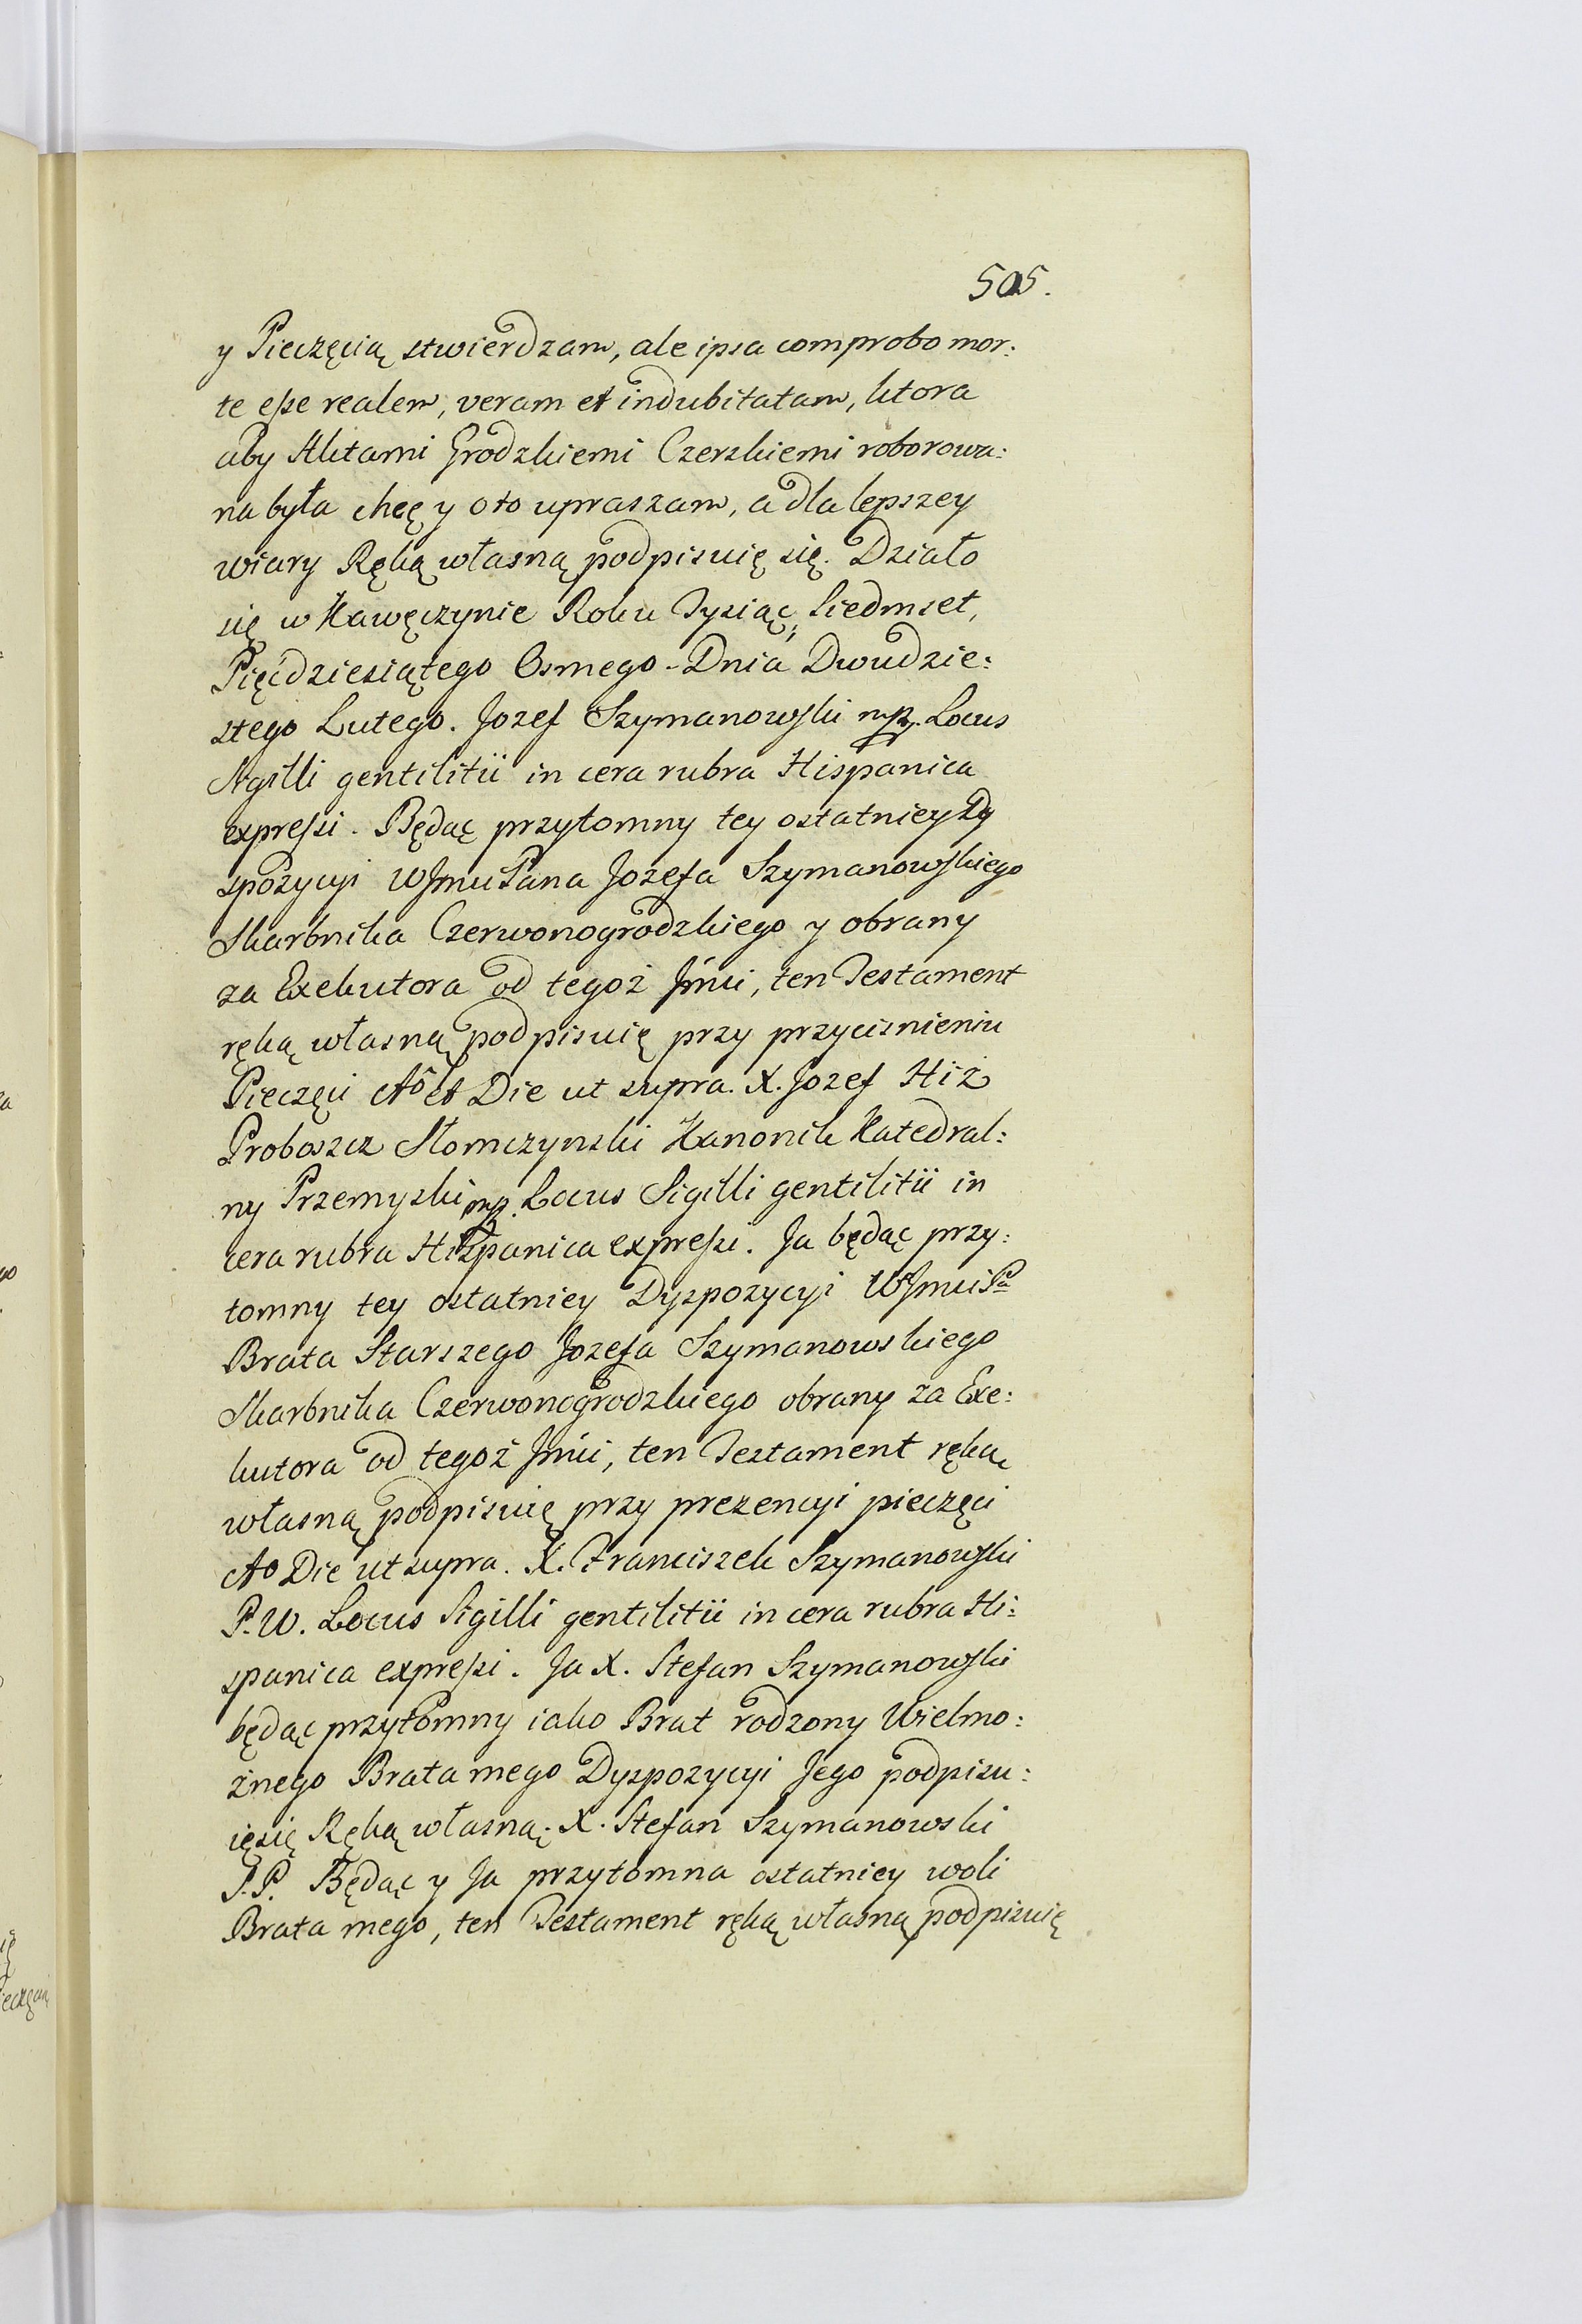 505.
y Pieczęcią stwierdzam, ale ipsa comprobo mor:
te eſse realem, veram et indubitatam, ktora
aby Aktami Grodzkiemi Czerskiemi roborowa:
na była chcę y oto upraszam, a dla lepszey
wiary Ręką własną podpisuię się. Działo
się w Kawęczynie Roku Tysiąc, Siedmset,
Pięćdziesiątego Osmego - Dnia Dwudzie:
stego Lutego. Jozef Szymanowski mp. Locus
Sigilli gentilitii in cera rubra Hispanica
expreſsi. Będąc przytomny tey ostatniey Dy
spozycyi WJmu Pana Jozefa Szymanowskiego
Skarbnika Czerwonogrodzkiego y obrany
za Exekutora od tegoż Jmći, ten Testament
ręką własną podpisuię przy przycisnieniu
Pieczęci Aô et Die ut supra. X. Jozef Hiż
Proboszcz Słomczynski Kanonik Katedral:
ny Przemyski mp. Locus Sigilli gentilitii in
cera rubra Hiszpanica expreſsi. Ja będąc przy:
tomny tey ostatniey Dyspozycyi WJmći Pa
Brata Starszego Jozefa Szymanowskiego
Skarbnika Czerwonogrodzkiego obrany za Exe:
kutora od tegoż Jmći, ten Testament ręką
własną podpisuię przy prezencyi pieczęci
Ao Die ut supra. X. Franciszek Szymanowski
P. W. Locus Sigilli gentilitii in cera rubra Hi:
spanica expreſsi. Ja X. Stefan Szymanowski
będąc przytomny iako Brat rodzony Wielmo:
żnego Brata mego Dyspozycyi Jego podpisu:
ię się Ręką własną. X. Stefan Szymanowski
P. P. Będąc y Ja przytomna ostatniey woli
Brata mego, ten Testament ręką własną podpisuię